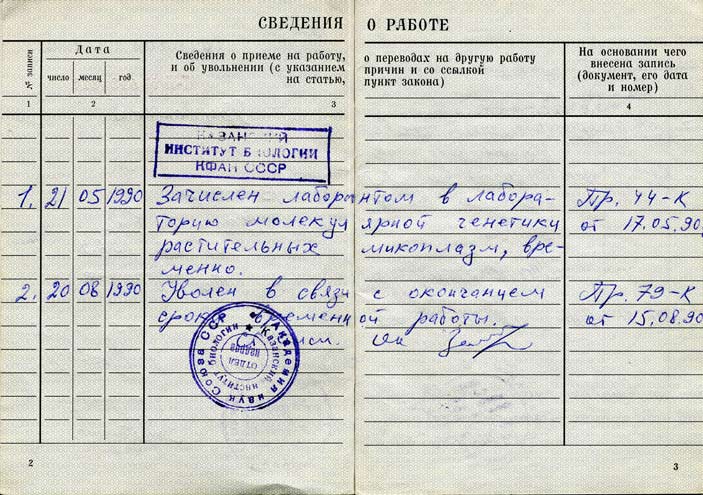 СВЕДЕНИЯ О РАБОТЕ
№ записи
Дата
число месяц год
Сведения о приеме на работу, о переводах на другую работу
и об увольнении (с указанием причин и со ссылкой
на статью, пункт закона)
На основании чего
внесена запись
(документ, его дата
и номер)
1 2 3 4
КАЗАНСКИЙ
ИНСТИТУТ БИОЛОГИИ
КФАН СССР
1. 21 05 1990 Зачислен лаборантом в лабора- Пр. 44-К
торию молекулярной генетики от 17.05.90
растительных микоплазм, вре-
менно.
2. 20 08 1990 Уволен в связи с окончанием Пр. 79-К
срока временной работы. от 15.08.90
Академия наук Союза ССР
Казанский институт биологии
ОТДЕЛ
кадров
2 3